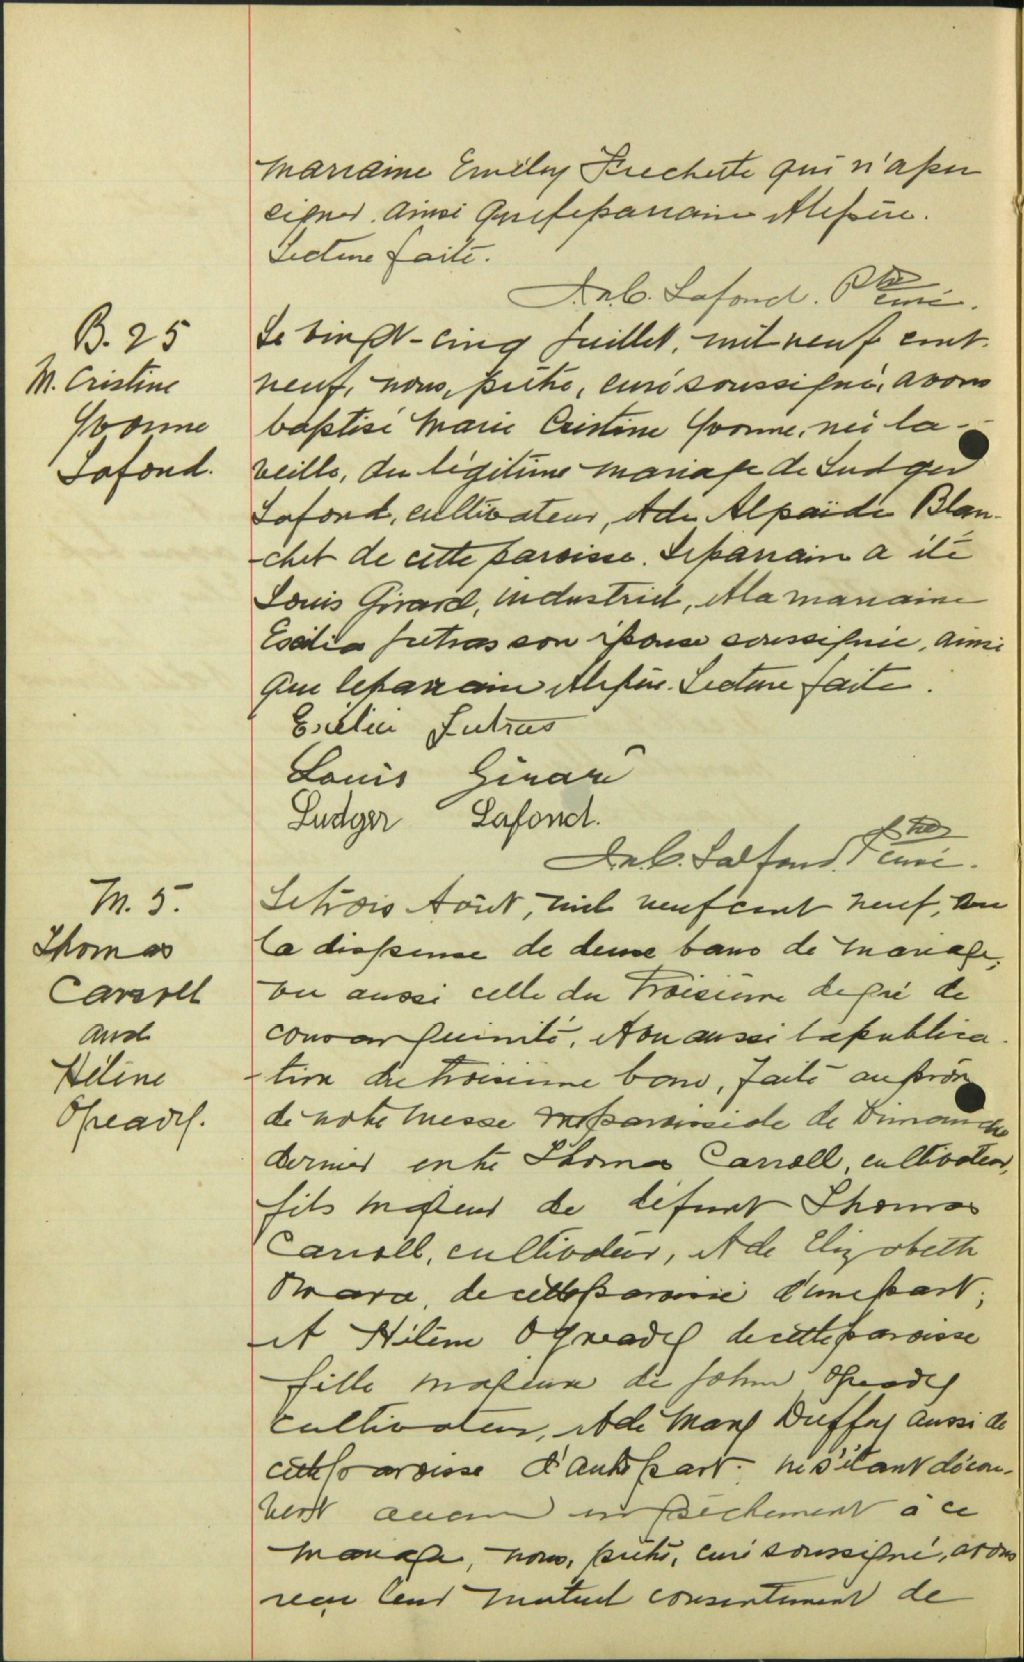 marraine Emély Frechette qui n'a pu
signer ainsi que le parrain et le père.
Lecture faite.
J. N. C. Lafond. Ptre curé.
B. 25
M. Cristine
Yvonne
Lafond.
Le vingt-cinq Juillet, mil neuf cent
neuf, nous, prêtre, curé soussigné, avons
baptisé Marie Cristine Yvonne, née la
veille, du légitime mariage de Ludger
Lafond, cultivateur, et de Alpaïde Blan-
-chet de cette paroisse. Le parrain a été
Louis Girard, industriel, et la marraine
Exilia Jutras son épouse soussignée, ainsi
que le parrain et le père. Lecture faite.
Exélia Jutras
Louis Girard
Ludger Lafond.
J. N. C. Lafond. Ptre curé.
M. 5.
Thomas
Carroll
and
Hélène
Ogready.
Le trois Août, mil neuf cent neuf, vu
la dispense de deux bans de mariage,
vu aussi celle du troisième degré de
consanguinité, et vu aussi la publica-
-tion du troisième banc, faite au prône
de notre messe paroissiale de Dimanche
dernier entre Thomas Carroll, cultivateur,
fils majeur de défunt Thomas
Carroll, cultivateur, et de Elizabeth
Omara, de cette paroisse d'une part;
et Hélène Ogready de cette paroisse
fille majeure de John Ogready
cultivateur, et de Mary Duffy aussi de
cette paroisse d'autre part; ne s'étant décou-
vert aucun empêchement à ce
mariage, nous, prêtre, curé soussigné, avons
reçu leur mutuel consentement de